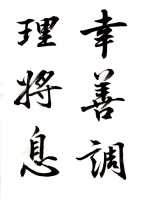 幸善調
理將息